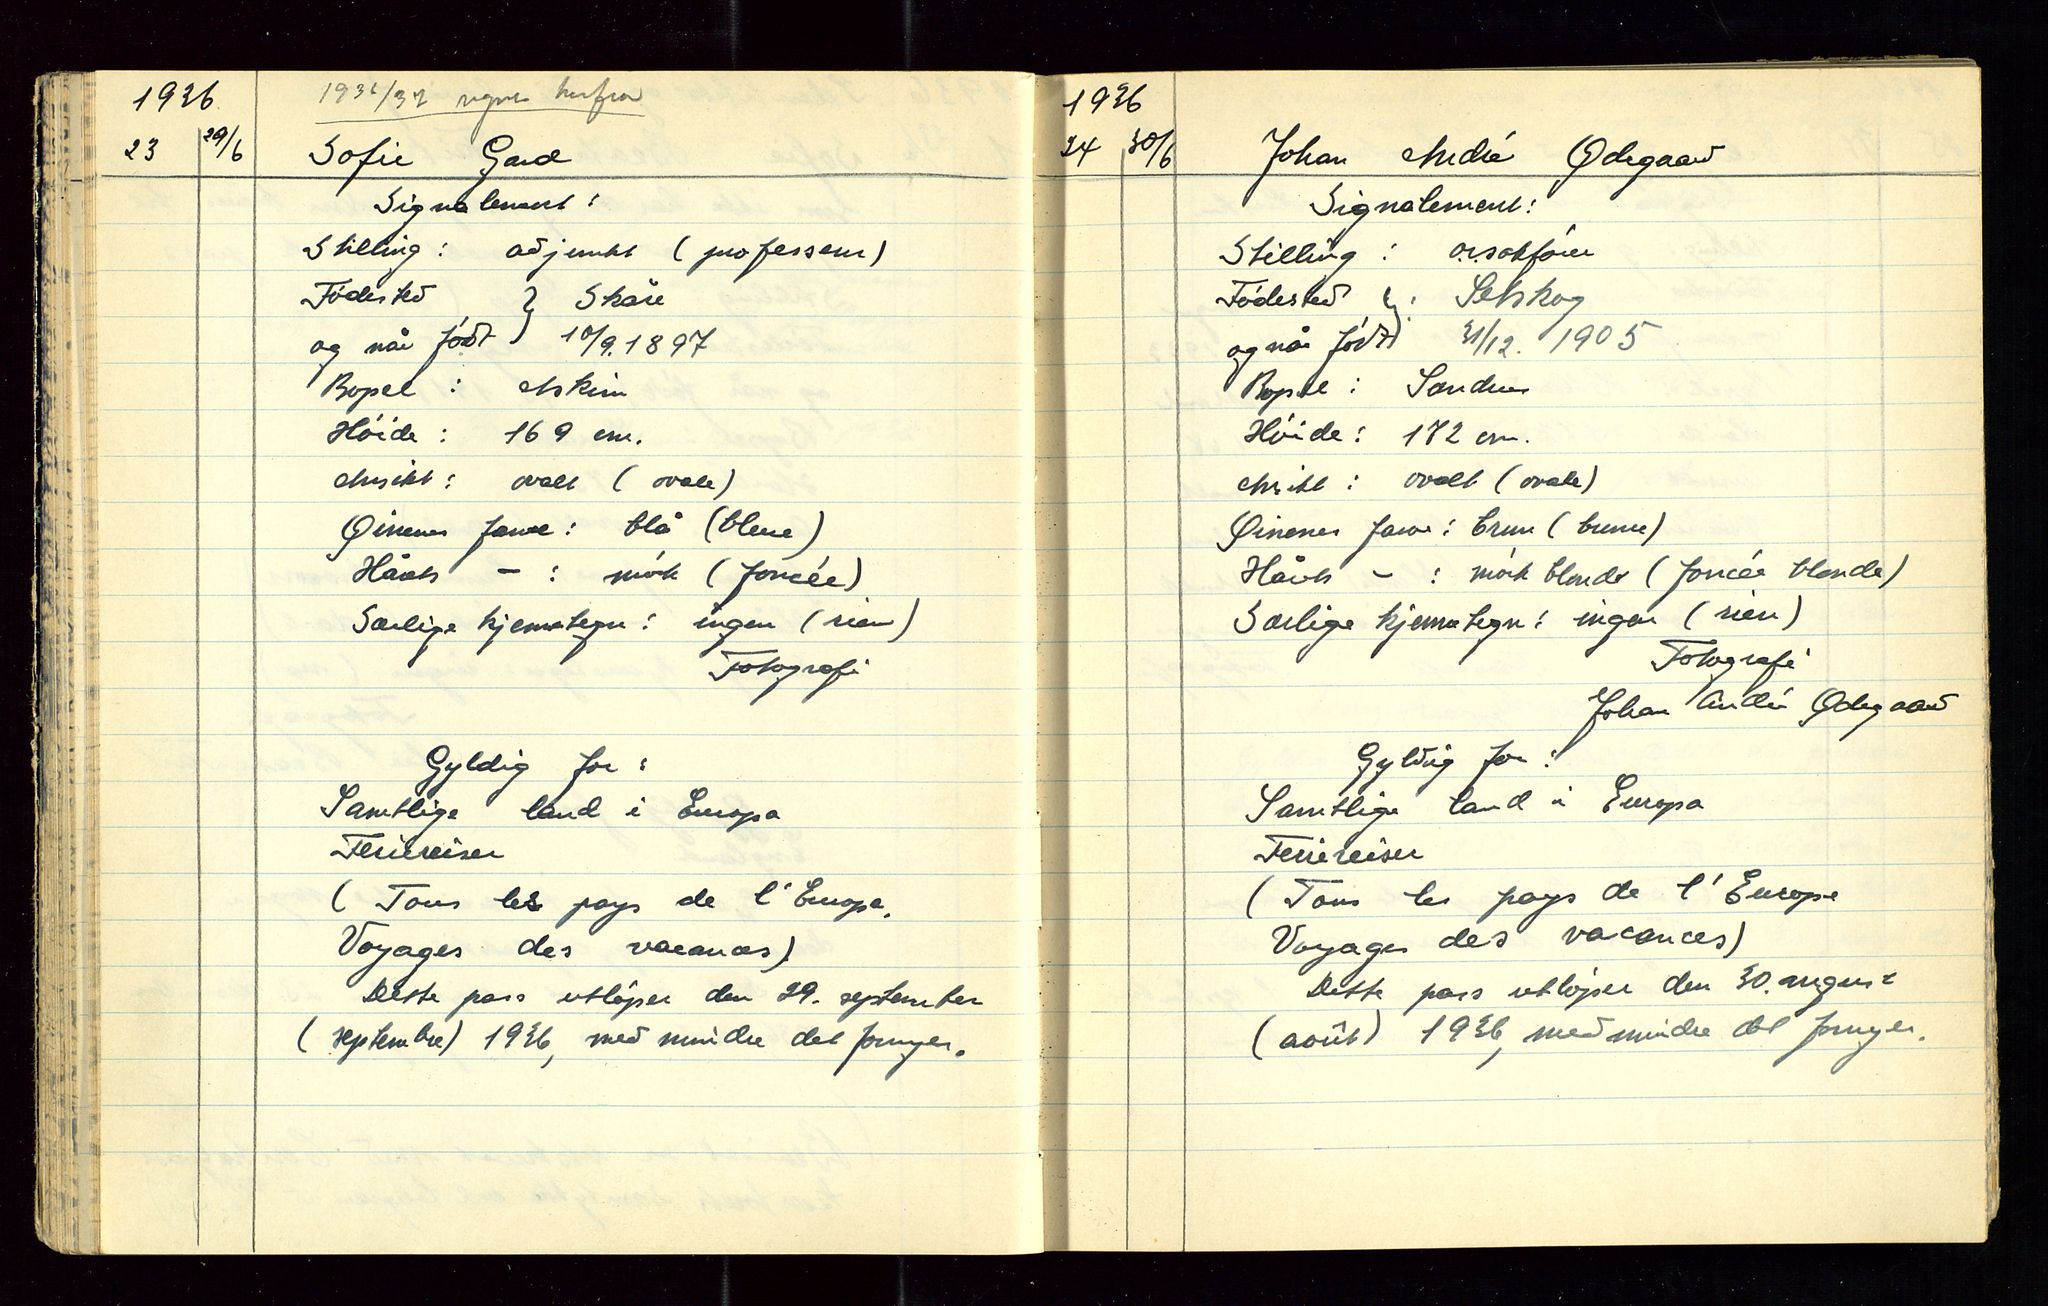 1936.
1936/37 regnes herfra
23 29/6 Sofie Gard
Signalement:
Stilling: adjunkt (professeur)
Fødested } Skåre
og når født } 10/9.1897
Bopel: Askim
Høide: 169 cm.
Ansikt: ovalt (ovale)
Øinenes farve: blå (bleue)
Hårets - : mørk (foncée)
Særlige kjennetegn: ingen (rien)
Fotografi
Gyldig for:
Samtlige land i Europa
Feriereiser
(Tous les pays de l'Europe.
Voyages des vacances)
Dette pass utløper den 29. september
(septembre) 1936, med mindre det fornyes.
1936
24 30/6 Johan André Ødegaard
Signalement:
Stilling: o.r.sakfører
Fødested } : Setskog
og når født } 31/12. 1905
Bopel: Sandnes
Høide: 172 cm.
Ansikt: ovalt (ovale)
Øinenes farve: brun (brune)
Hårets - : mørk blondt (foncée blonde)
Særlige kjennetegn: ingen (rien)
Fotografi
Johan André Ødegaard
Gyldig for:
Samtlige land i Europa
Feriereiser
(Tous les pays de l'Europe
Voyages des vacances)
Dette pass utløper den 30. august
(août) 1936, med mindre det fornyes.